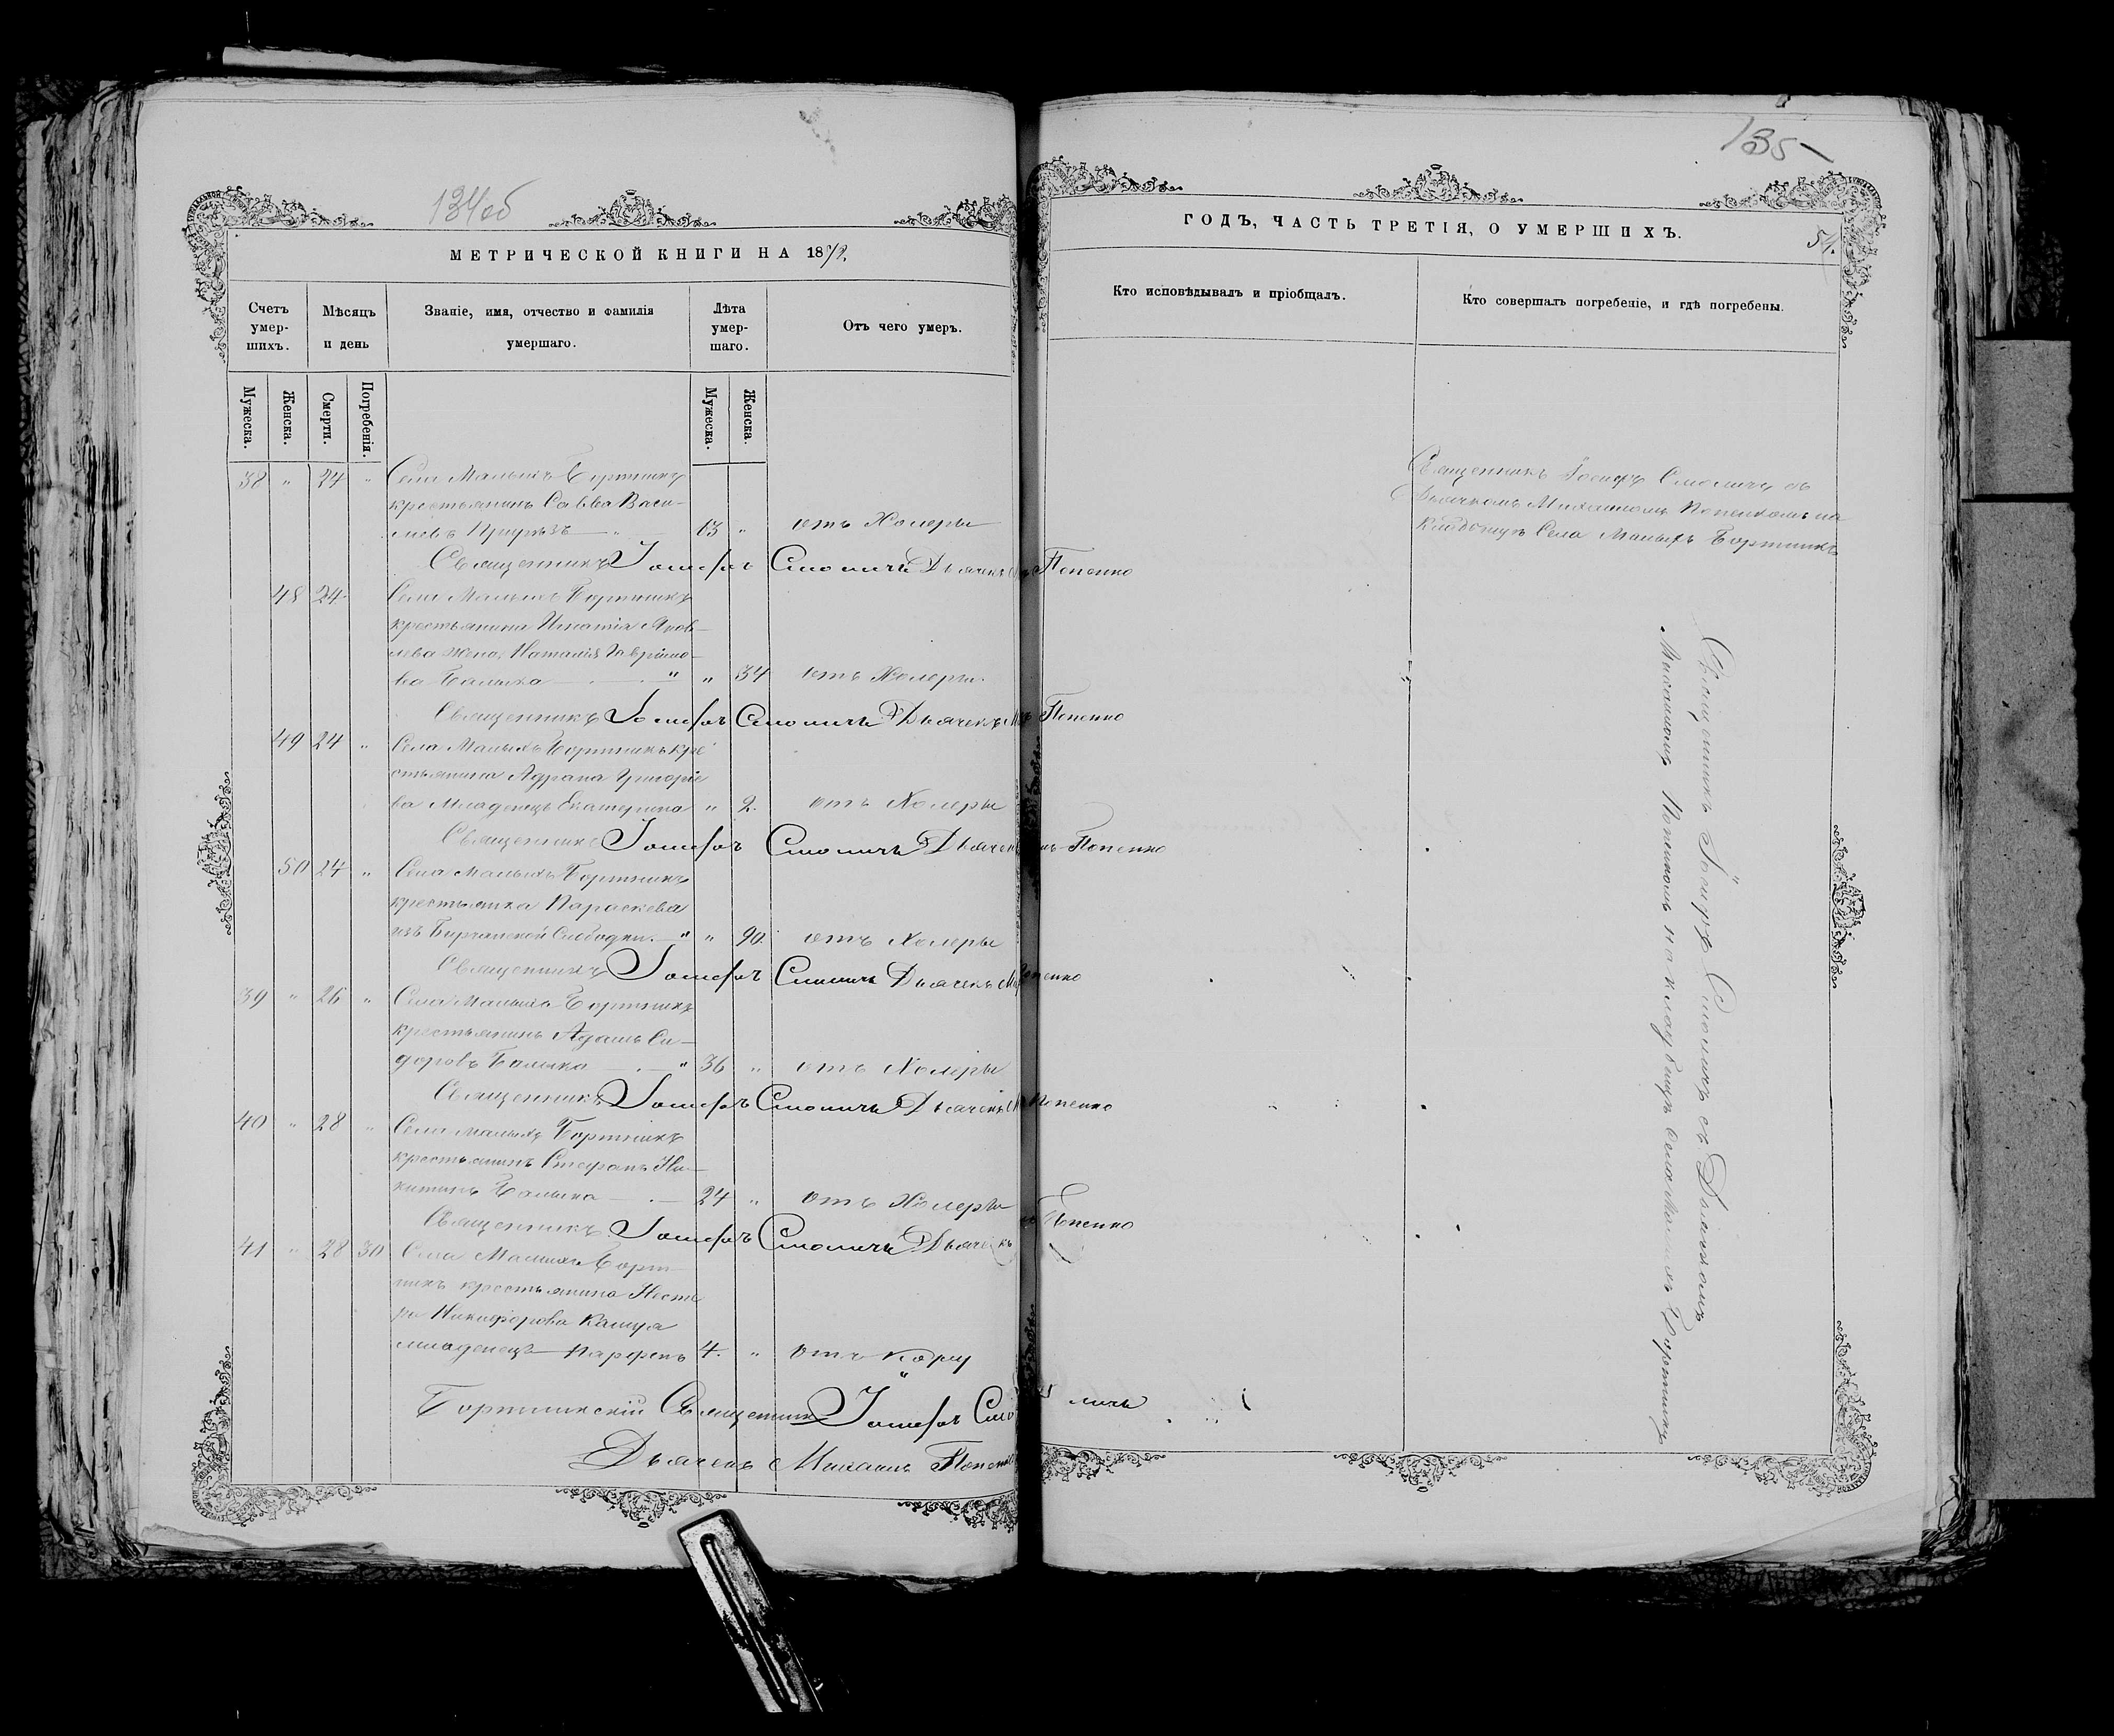 134об
МЕТРИЧЕСКОЙ КНИГИ НА 1872.
Счетъ умер-шихъ.
Мѣсяцъ и день
Званіе, имя, отчество и фамилія умершаго.
Лѣта умер-шаго.
Отъ чего умеръ.
Мужеска.
Женска.
Смерти.
Погребенія.
Мужеска.
Женска.
38 " 24 " Села Малыхъ Бортникъ
крестьянинъ Савва Васи-
льевъ 13 " отъ Холеры
Священникъ Іосифъ Смоличъ Дьячекъ М Попенко
48 24 Села Малыхъ Бортникъ
крестьянина Игнатія Яков-
лева жена Наталія Гаврило-
ва Балыка " " 34 отъ Холеры.
Священникъ Іосифъ Смоличъ Дьячекъ М Попенко
49 24 " Села Малыхъ Бортникъ кре
стьянина Адріана Григоріе
ва Младенецъ Екатерина " 2. отъ Холеры
Священникъ Іосифъ Смоличъ Дьячекъ Попенко
50 24 " Села Малыхъ Бортникъ
крестьянка Параскева
изъ Слободки. " " 90. отъ Холеры
Священникъ Іосифъ Смоличъ Дьячекъ М Попенко
39 " 26 " Села Малыхъ Бортникъ
крестьянинъ Адамъ Си-
доровъ Балыка " 36 " отъ Холеры
Священникъ Іосифъ Смоличъ Дьячекъ М Попенко
40 " 28 " Села Малыхъ Бортникъ
крестьянинъ Стефанъ Ни-
китинъ Балыка 24 " отъ Холеры
Священникъ Іосифъ Смоличъ Дьячекъ Попенко
41 " 28 30 Села Малыхъ Борт-
никъ крестьянина Несто
ра Никифорова Кацура
младенецъ Парфенъ 4. " отъ кору
Бортникскій Священникъ Іосифъ Смоличъ
Дьячекъ Михаилъ Попенко
135
ГОДЪ, ЧАСТЬ ТРЕТІЯ, О УМЕРШИХЪ.
54.
Кто исповѣдывалъ и пріобщалъ.
Кто совершалъ погребеніе, и гдѣ погребены.
Священникъ Іосифъ Смоличъ съ
Дьячкомъ Михаиломъ Попенкомъ на
кладбищѣ Села Малыхъ Бортникъ
Священникъ Іосифъ Смоличъ съ Дьячкомъ
Михаиломъ Попенкомъ на кладбищѣ Села Малыхъ Бортникъ